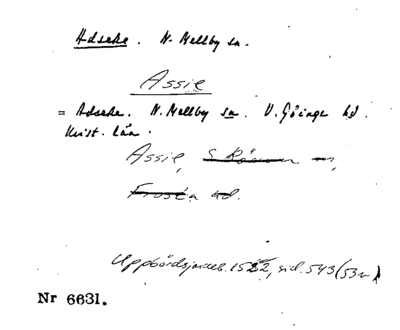 Adseke. N. Mellby sn.
Assie
= Adseke. N. Mellby sn. V. Göinge hd.
Krist. län.
Assie,
Frosta hd.
Uppbördsjordeb. 1522, sid. 543 (53v)
Nr 6631.